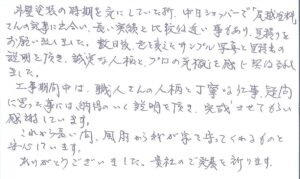 外壁塗装の時期を気にしていた所、中日ショッパーで「尾越塗装
さんの記事に出会い、長い実績と比較的近い事もあり、見積りを
お願い致しました。数日後、色を変えたサンプル写真と見積書の
説明を頂き、誠実な人柄と、プロの気概を感じ契約致し
ました。
工事期間中は、職人さんの人柄と丁寧な仕事、疑問
に思った事には納得のいく説明を頂き、完成させてもらい
感謝しています。
これから長い間、風雨から我が家を守ってくれるものと
安心しています。
ありがとうございました。貴社のご発展を祈ります。